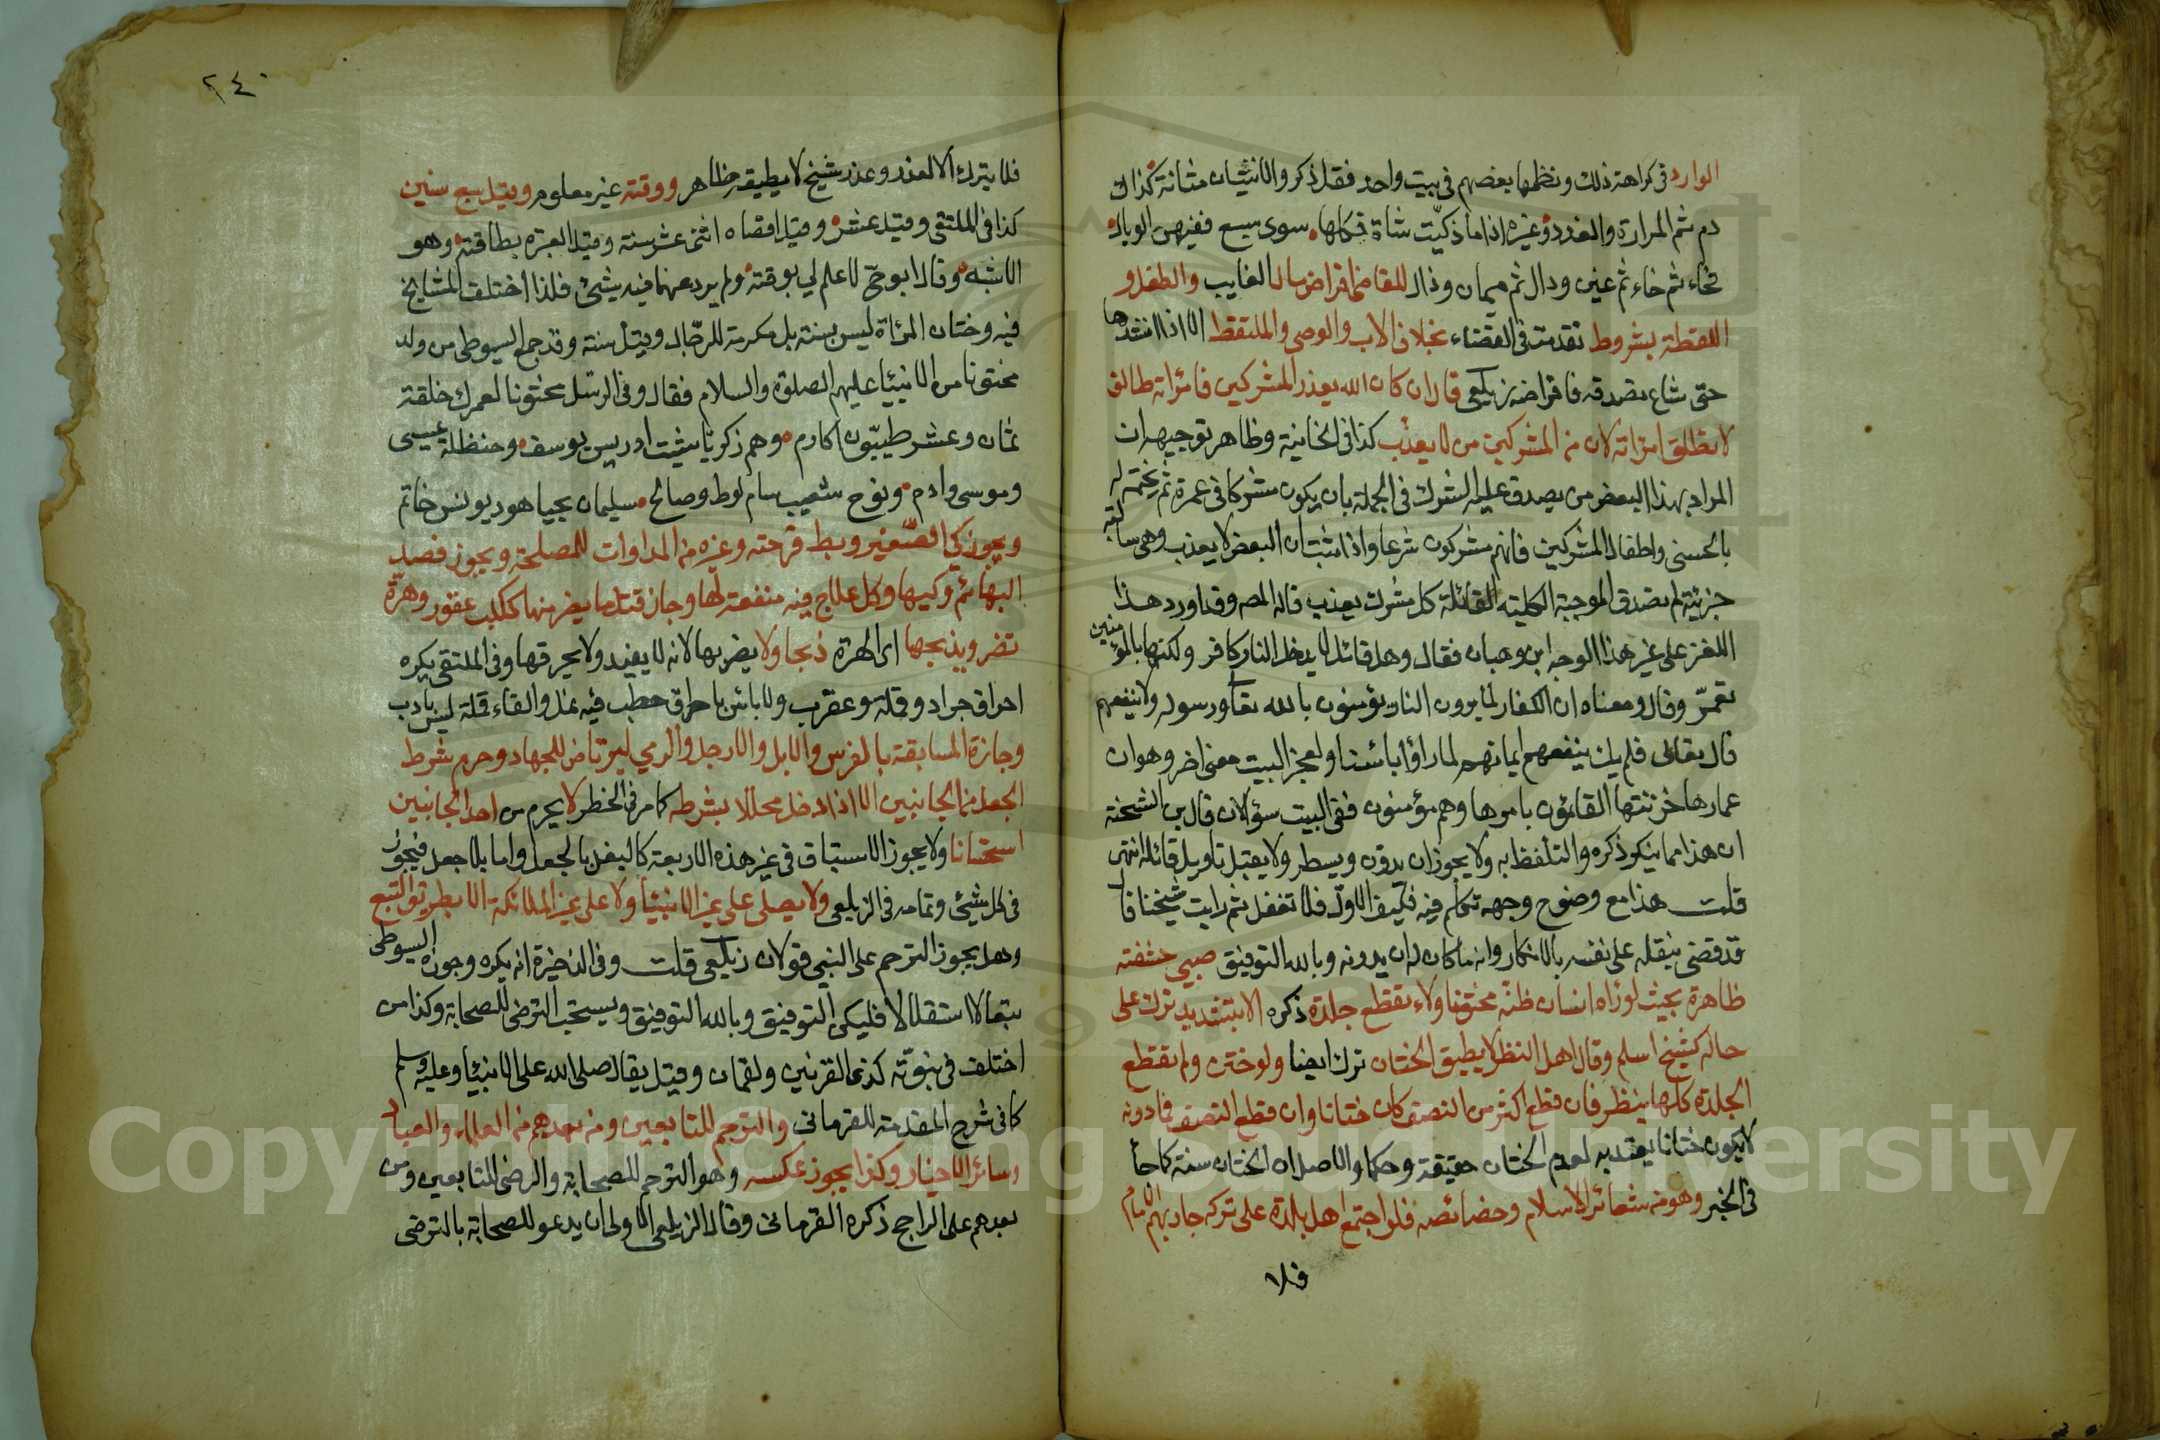 الوارد في كراهة ذلك ونظمها بعضهم في بيت واحد فقل ذكر والانثيان مثانة كذاك
دم ثم المرارة والغدد وغيره اذا ما ذكيت شاة فكلها سوى سبع ففيهن الوبال
فحاء ثم خاء ثم غين ودال ثم ميمان وذال للقاضى اقراض مال الغايب والطفل و
اللقطة بشروط تقدمت في القضاء بخلاف الاب والوصي والملتقط الا اذا انشدها
حتى شاع تصدقه فاقراضه زيلعى قال ان كان الله يعذر المشركين فامرأته طالق
لا تطلق امرأته لان من المشركين من لا يعذب كذا فى الخانية وظاهر توجيهه ان
المراد بهذا البعض من يصدق عليه الشرك فى الجملة بان يكون مشركا فى عمره ثم يختم له
بالحسنى واطفال المشركين فانهم مشركون شرعا واذا ثبت ان البعض لا يعذب وهى سالبة
جزئية لم تصدق الموجبة الكلية القائلة كل مشرك يعذب قاله المص وقد اورد هذا
اللغز على غير هذا الوجه ابن وهبان فقال وهل قائل لا يدخل النار كافر ولكنها بالمؤمنين
تعمر وقال ومعناه ان الكفار لما يرون النار يؤمنون بالله تعا ورسوله ولا ينفعهم
قال تعالى فلم يك ينفعهم ايمانهم لما رأوا بأسنا ولعجز البيت معنى اخر وهو ان
عمارها خزنتها القائمون بامرها وهم مؤمنون ففى البيت سؤالان قال ابن الشحنة
ان هذا مما ينكر ذكره والتلفظ به ولا يجوز ان يدون ويسطر ولا يقبل تاويل قائله انتهى
قلت هذا مع وضوح وجهه تكلم فيه فكيف الاول فلا تغفل ثم رايت شيخنا قال
قد قضى بنقله على نفسه بالانكار وانه ما كان له ان يدونه وبالله التوفيق صبي حشفته
ظاهرة بحيث لو رآه انسان ظنه مختونا ولا تقطع جلدة ذكره الا بتشديد ترك على
حاله كشيخ اسلم وقال اهل النظر لا يطيق الختان ترك ايضا ولو ختن ولم تقطع
الجلدة كلها ينظر فان قطع اكثر من النصف كان ختانا وان قطع النصف فما دونه
لا يكون ختانا يعتد به لعدم الختان حقيقة وحكما والاصل ان الختان سنة كما جأ
فى الخبر وهو من شعائر الاسلام وخصائصه فلو اجتمع اهل بلدة على تركه حاربهم الامام
فلا
٢٤٠
فلا يترك الا لعذر وعذر شيخ لا يطيقه ظاهر ووقته غير معلوم وقيل سبع سنين
كذا فى الملتقى وقيل عشر وقيل اقصاه اثنى عشر سنة وقيل العبرة بطاقته وهو
الاشبه وقال ابو ح لا علم لي بوقته ولم يرد عنهما فيه شئ فلذا اختلف المشايخ
فيه وختان المرأة ليس بسنة بل مكرمة للرجال وقيل سنة وقد جمع السيوطى من ولد
مختونا من الانبيا عليهم الصلوة والسلام فقال وفى الرسل مختونا لعمرك خلقة
ثمان وعشر طيبون اكارم وهم زكريا شيث ادريس يوسف وحنظلة عيسى
وموسى وادم ونوح شعيب سام لوط وصالح سليمان يحيا هود يونس خاتم
ويجوز كي الصغير وبط قرحته وغيره من المداوات للمصلحة ويجوز فصد
البهائم وكيها وكل علاج فيه منفعة لها وجاز قتل ما يضر منها ككلب عقور وهرة
تضر ويذبحها اى الهرة ذبحا ولا يضربها لانه لا يفيد ولا يحرقها وفى الملتقى يكره
احراق جراد وقملة وعقرب ولا بائس باحراق حطب فيه نمل والقاء قملة ليس بادب
وجازة المسابقة بالفرس والابل والارجل والرمي ليرتاض للجهاد وحرم شرط
الجعل من الجانبين الا اذا ادخل محللا بشرطه كما مر فى الخظر لا يحرم من احد الجانبين
استحسانا ولا يجوز الاستباق فى غير هذه الاربعة كالبغل بالجعل واما بلا جعل فيجوز
فى كل شئ وتمامه فى الزيلعى ولا يصلى على غير الانبيأ ولا على غير الملائكة الا بطريق التبع
وهل يجوز الترحم على النبي قولان زيلعى قلت وفى الذخيرة انه يكره وجوزه السيوطى
تبعا لا استقلالا فليكن التوفيق وبالله التوفيق ويستحب الترضى للصحابة وكذا من
اختلف فى نبوته كذى القرنين ولقمان وقيل يقال صلى الله على الانبيأ وعليه وسلم
كما فى شرح المقدمة للقرمانى والترحم للتابعين ومن بعدهم من العلماء والعباد
وسائر الاخيار وكذا يجوز عكسه وهو الترحم للصحابة والرضى للتابعين ومن
بعدهم على الراجح ذكره القرمانى وقال الزيلعى الاولى ان يدعو للصحابة بالترضى
Copyright © King Saud University